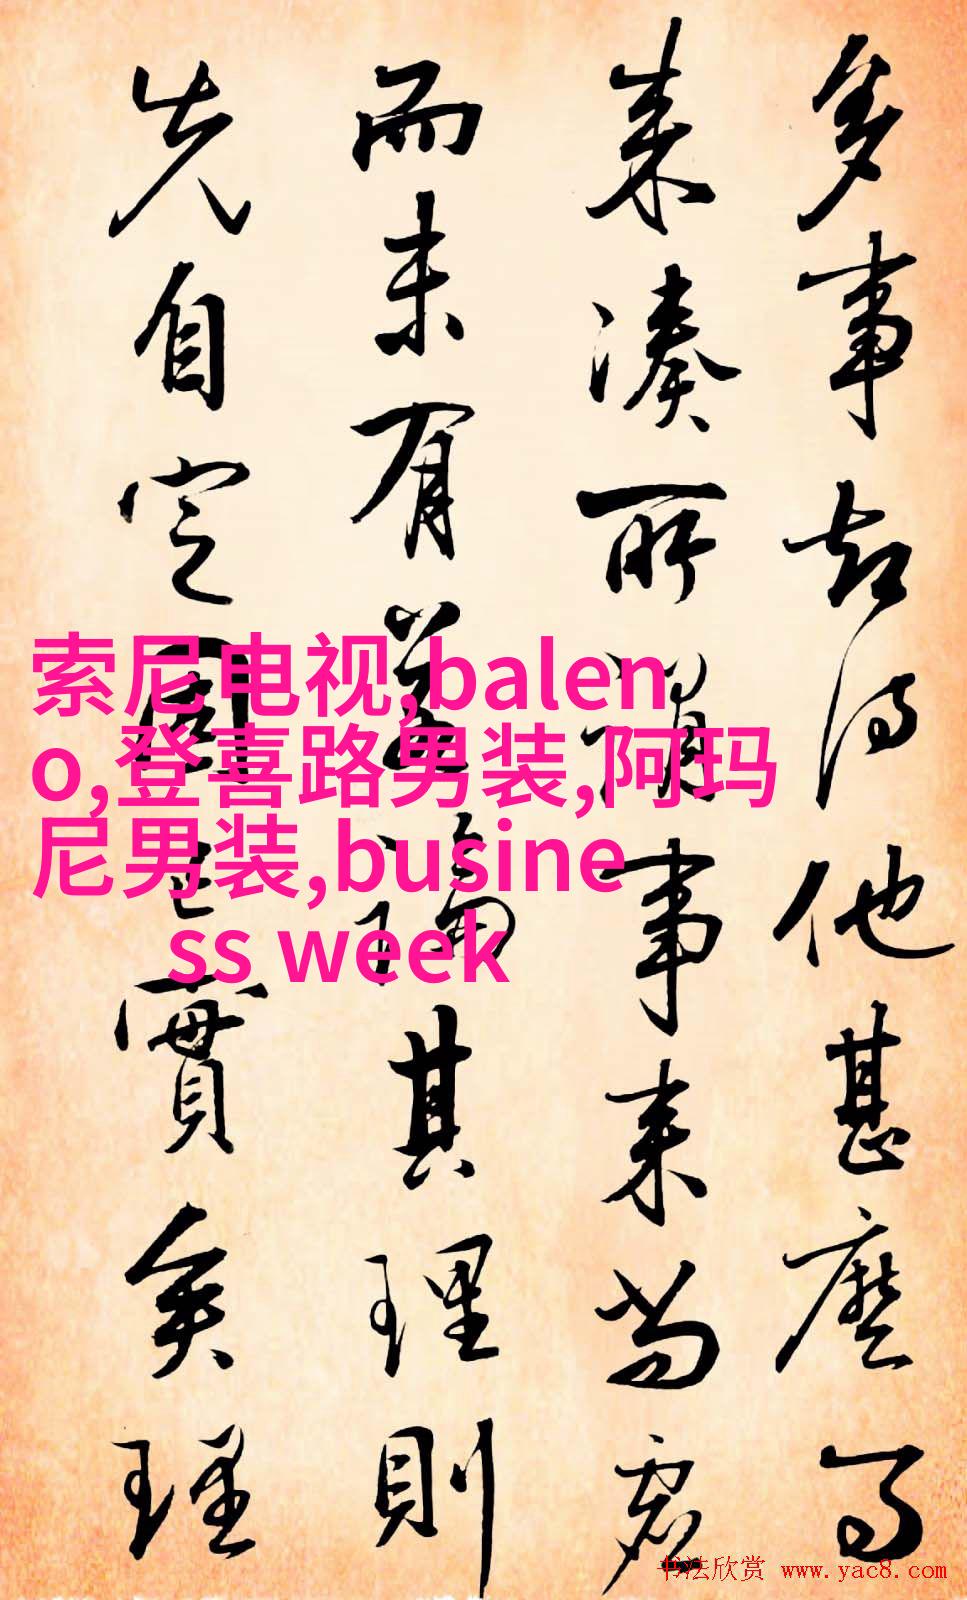 多事却得他甚麼
来湊所謂事来尚虚
而未有若論其理則
先自定固已實矣理
索尼电视,balen
o,登喜路男装,阿玛
尼男装,busine
ss week
书法欣赏 www.yac8.com